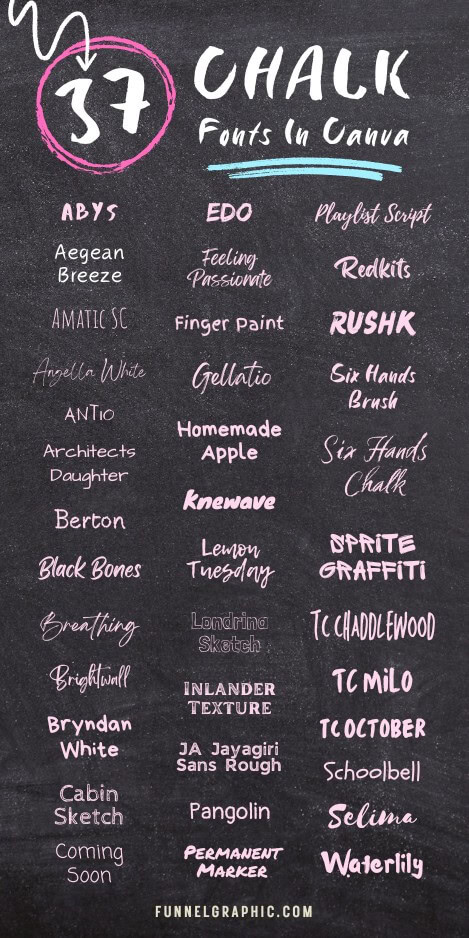 37
CHALK
Fonts In Canva
ABYS
Aegean
Breeze
AMATIC SC
Angella White
ANTIO
Architects
Daughter
Berton
Black Bones
Breathing
Brightwall
Bryndan
White
Cabin
Sketch
Coming
Soon
EDO
Feeling
Passionate
Finger Paint
Gellatio
Homemade
Apple
Knewave
Lemon
Tuesday
Londrina
Sketch
INLANDER
TEXTURE
JA Jayagiri
Sans Rough
Pangolin
PERMANENT
MARKER
Playlist Script
Redkits
RUSHK
Six Hands
Brush
Six Hands
Chalk
SPRITE
GRAFFITI
TC CHADDLEWOOD
TC MILO
TC OCTOBER
Schoolbell
Selima
Waterlily
FUNNELGRAPHIC.COM